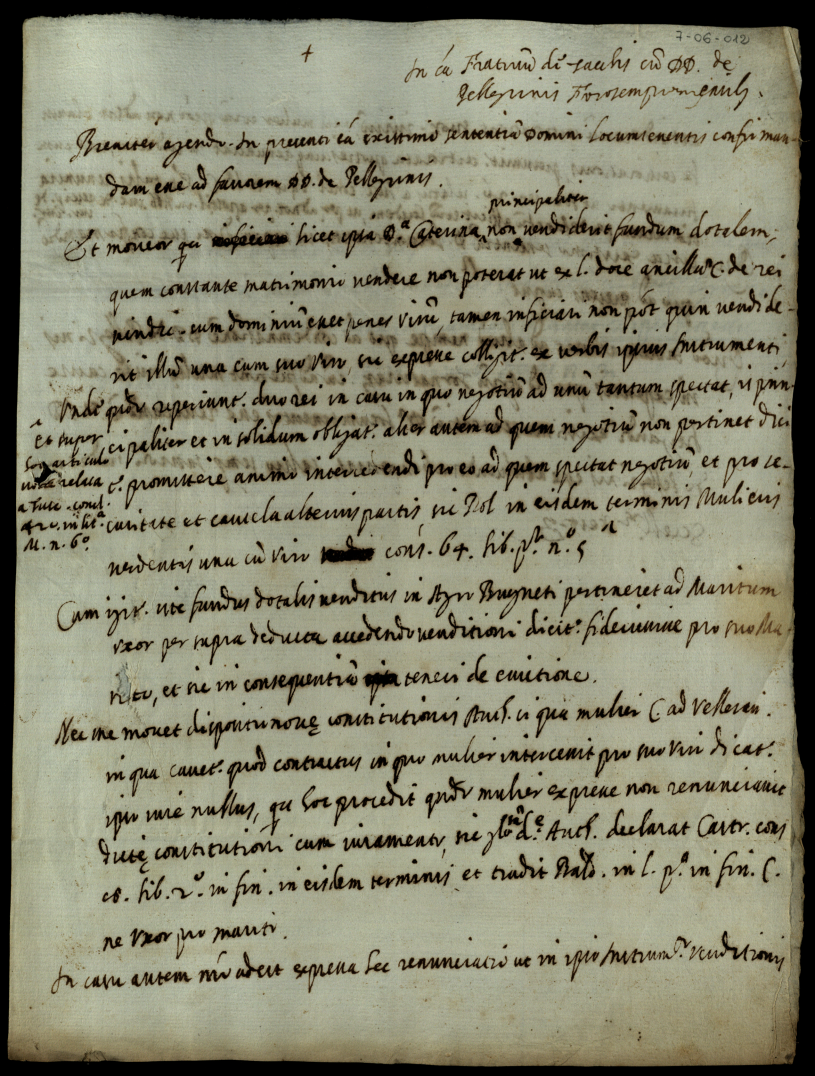 7-06-012
+
In ca Fratrum de cū DD. de
Pellegrinis Forosempronien
Breviter agendo. In presenti ca existimo sententiā Domini Locumtenentis confirman-
dam esse ad favorem DD. de Pellegrinis.
principaliter
Et moveor qa licet ipsa D.a Caterina non vendiderit fundum dotalem,
quem constante matrimonio vendere non poterat ut ex l. doce ancillā C. de rei
vindic. cum dominiū esset penes virū, tamen inficiari non pōt quin vendide-
rit illū una cum suo viro sic expresse colligit.r ex verbis ipsius Instrumenti
Unde qdo reperiunt.r duo rei in casu in quo negotiū ad unū tantum spectat, is prin-
cipaliter et in solidum obligat.r alter autem ad quem negotiū non pertinet dici
t.r promittere animo intercedendi pro eo ad quem spectat negotiū, et pro se-
curitate et cautela alterius partis sic Rol in eisdem terminis Mulieris
vendentis una cū viro cons. 64. lib. p.o n.o 5
Et super
hoc articulo
vota relata
a Tusc. concl.
lit.a
M. n. 6o.
Cum igit.r iste fundus dotalis venditus in Agro Bugneti pertineret ad Maritum
uxor per supra deducta accedendo venditioni dicit.r fideiussisse pro suo Ma-
rito, et sic in consequentiā teneri de evictione.
Nec me movet dispositio novę constitutionis Auth. si qua mulier C. ad Velleian.
in qua cavet.r quod contractus in quo mulier intercessit pro suo viro dicat.r
ipso iure nullus, qa hoc procedit qdo mulier expresse non renunciavit
dictę constitutioni cum iuramento, sic d.e Auth. declarat Castr. cons
lib. 2.o in fin. in eisdem terminis et tradit Bald. in l. p.a in fin. C.
ne uxor pro marito.
In casu autem nrō adest expressa hec renunciatio ut in ipso Instrum.to venditionis